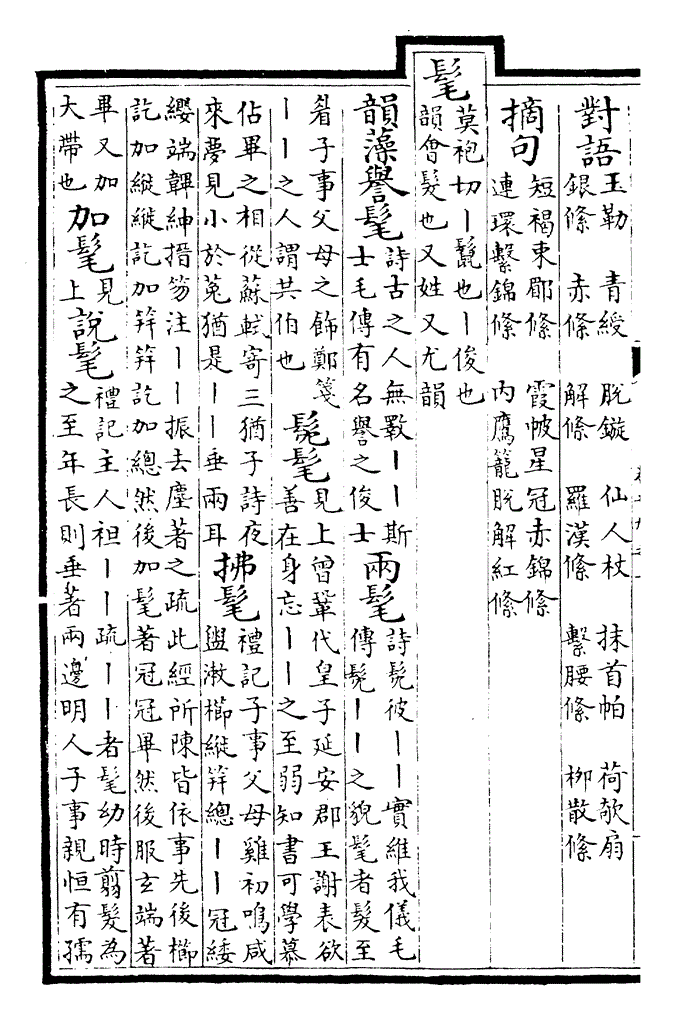 對語
玉勒 青綬 脫鏇 仙人杖 抹首帕 荷欹扇
銀絛 赤絛 解絛 羅漢絛 繫腰絛 柳散絛
摘句
短褐東郿絛 霞帔星冠赤錦絛
連環繫錦絛 內鷹籠脫解紅絛
髦
莫袍切丨鬣也丨俊也
韻會髮也又姓又尤韻
韻藻譽髦
詩古之人無斁丨丨斯
士毛傳有名譽之俊士
兩髦
詩髧彼丨丨實維我儀毛
傳髧丨丨之貌髦者髮至
眉子事父母之飾鄭箋
丨丨之人謂共伯也
髧髦
見上曾鞏代皇子延安郡王謝表欲
善在身忘丨丨之至弱知書可學慕
佔畢之相從蘇軾寄三猶子詩夜
來夢見小於菟猶是丨丨垂兩耳
拂髦
禮記子事父母雞初鳴咸
盥漱櫛縰笄總丨丨冠緌
纓端韠紳搢笏注丨丨振去塵著之疏此經所陳皆依事先後櫛
訖加縰縰訖加笄笄訖加總然後加髦著冠冠畢然後服玄端著
畢又加
大帶也
加髦
見
上
說髦
禮記主人袒丨丨疏丨丨者髦幼時翦髮為
之至年長則垂著兩邊明人子事親恒有孺